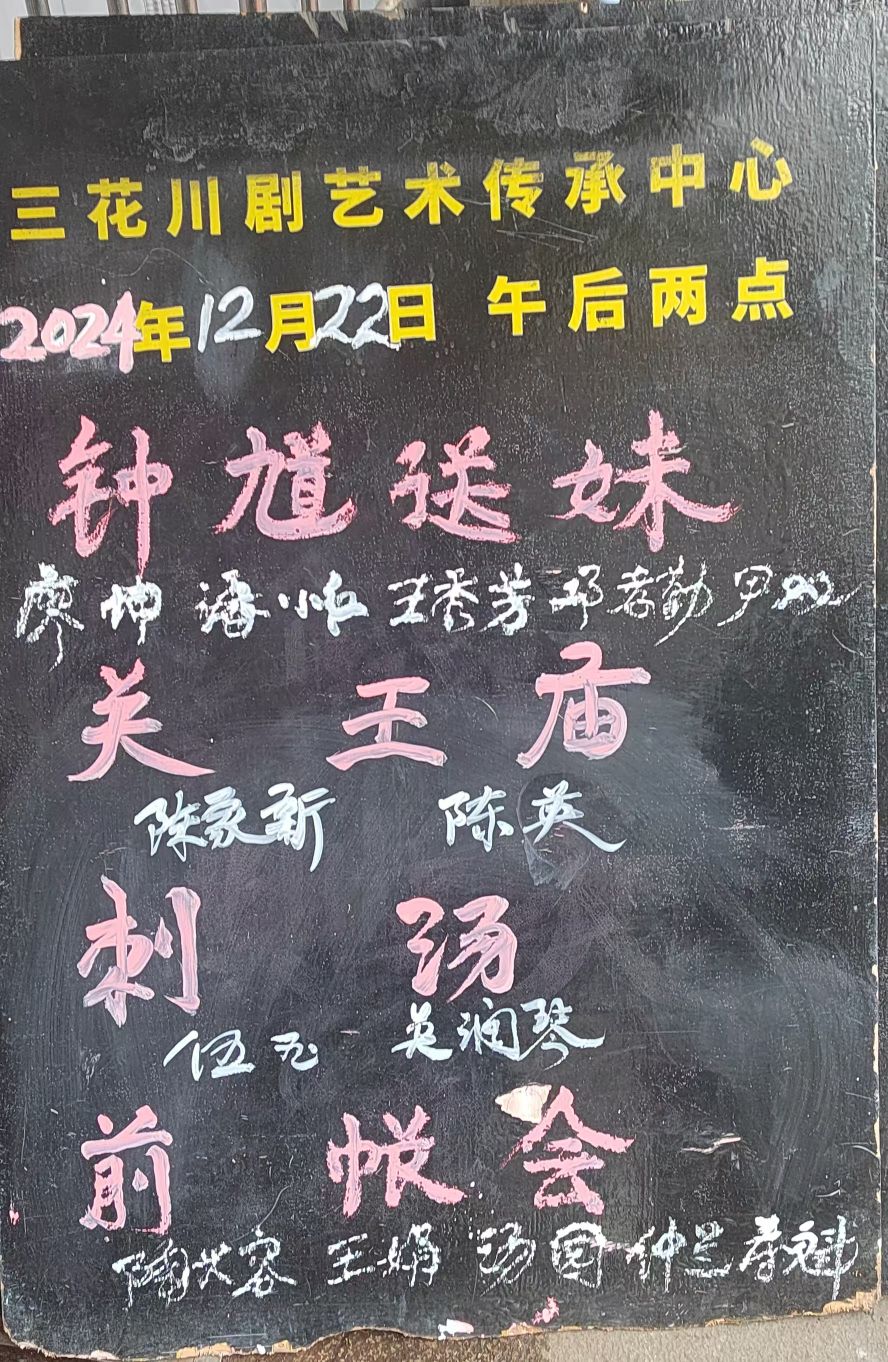 三花川剧艺术传承中心
2024年12月22日 午后两点
钟馗送妹
廖坤 潘小 王秀芳 邓孝勤 尹
关王庙
陈家新 陈英
刺汤
伍 吴润琴
前帐会
陶兴容 王娟 汤国 钟兰 春魁